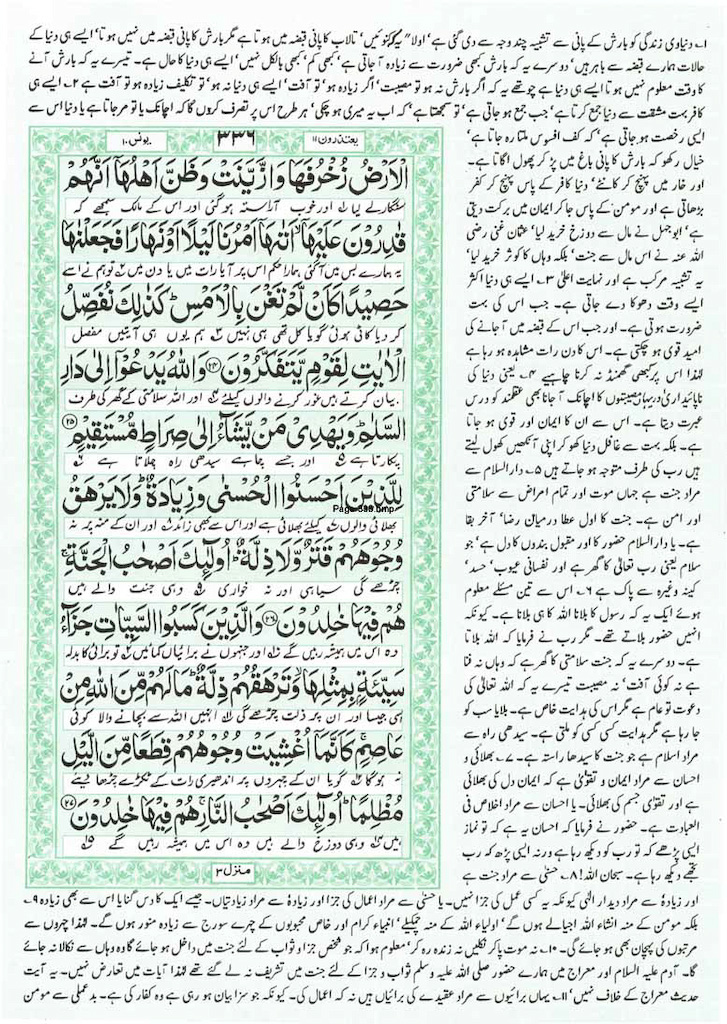 ۱۔ دنیاوی زندگی کو بارش کے پانی سے تشبیہ چند وجہ سے دی گئی ہے، اولاً یہ کہ کنوئیں، تالاب کا پانی قبضہ میں ہوتا ہے مگر بارش کا پانی قبضہ میں نہیں ہوتا، ایسے ہی دنیا کے
حالات ہمارے قبضہ سے باہر ہیں، دوسرے یہ کہ بارش کبھی ضرورت سے زیادہ آ جاتی ہے، کبھی کم، کبھی بالکل نہیں، ایسے ہی دنیا کا حال ہے۔ تیسرے یہ کہ بارش آنے
کا وقت معلوم نہیں ہوتا ایسے ہی دنیا ہے چوتھے یہ کہ اگر بارش نہ ہو تو مصیبت، اگر زیادہ ہو، تو آفت، ایسے ہی دنیا نہ ہو، تو تکلیف زیادہ ہو تو آفت ہے ۲۔ ایسے ہی
کافر بہت مشقت سے دنیا جمع کرتا ہے، جب جمع ہو جاتی ہے، تو سمجھتا ہے، کہ اب یہ میری ہو چکی، ہر طرح اس پر تصرف کروں گا کہ اچانک یا تو مر جاتا ہے یا دنیا اس سے
یعتذرون ۱۱
۳۳۶
یونس ۱۰
الْاَرْضُ زُخْرُفَهَا وَازَّيَّنَتْ وَظَنَّ اَهْلُهَاۤ اَنَّهُمْ
سنگار لے لیا اور خوب آراستہ ہو گئی اور اس کے مالک سمجھے کہ
قٰدِرُوْنَ عَلَيْهَاۤ ۙ اَتٰىهَاۤ اَمْرُنَا لَيْلًا اَوْ نَهَارًا فَجَعَلْنٰهَا
یہ ہمارے بس میں آ گئی ہمارا حکم اس پر آیا رات میں یا دن میں تو ہم نے اسے
حَصِيْدًا كَاَنْ لَّمْ تَغْنَ بِالْاَمْسِ ؕ كَذٰلِكَ نُفَصِّلُ
کر دیا کاٹی ہوئی گویا کل تھی ہی نہیں ہم یوں ہی آیتیں مفصل
الْاٰيٰتِ لِقَوْمٍ يَّتَفَكَّرُوْنَ ﴿۲۴﴾ وَاللّٰهُ يَدْعُوْۤا اِلٰى دَارِ
بیان کرتے ہیں غور کرنے والوں کیلئے اور اللہ سلامتی کے گھر کی طرف
السَّلٰمِ ؕ وَيَهْدِىْ مَنْ يَّشَآءُ اِلٰى صِرَاطٍ مُّسْتَقِيْمٍ ﴿۲۵﴾
پکارتا ہے اور جسے چاہے سیدھی راہ چلاتا ہے
لِلَّذِيْنَ اَحْسَنُوا الْحُسْنٰى وَزِيَادَةٌ ؕ وَلَا يَرْهَقُ
بھلائی والوں کیلئے بھلائی ہے اور اس سے بھی زائد اور ان کے منہ پر نہ
وُجُوْهَهُمْ قَتَرٌ وَّلَا ذِلَّةٌ ؕ اُولٰٓئِكَ اَصْحٰبُ الْجَنَّةِ ۚ
چڑھے گی سیاہی اور نہ خواری وہی جنت والے ہیں
هُمْ فِيْهَا خٰلِدُوْنَ ﴿۲۶﴾ وَالَّذِيْنَ كَسَبُوا السَّيِّاٰتِ جَزَآءُ
وہ اس میں ہمیشہ رہیں گے اور جنہوں نے برائیاں کمائیں تو برائی کا بدلہ
سَيِّئَةٍۭ بِمِثْلِهَا ۙ وَتَرْهَقُهُمْ ذِلَّةٌ ؕ مَا لَهُمْ مِّنَ اللّٰهِ مِنْ
اسی جیسا اور ان پر ذلت چڑھے گی انہیں اللہ سے بچانے والا کوئی
عَاصِمٍ ۚ كَاَنَّمَاۤ اُغْشِيَتْ وُجُوْهُهُمْ قِطَعًا مِّنَ الَّيْلِ
نہ ہوگا گویا ان کے چہروں پر اندھیری رات کے ٹکڑے چڑھا دیئے
مُظْلِمًا ؕ اُولٰٓئِكَ اَصْحٰبُ النَّارِ ۚ هُمْ فِيْهَا خٰلِدُوْنَ ﴿۲۷﴾
ہیں وہی دوزخ والے ہیں وہ اس میں ہمیشہ رہیں گے
منزل ۳
ایسی رخصت ہو جاتی ہے، کہ کف افسوس ملتا رہ جاتا ہے،
خیال رکھو کہ بارش کا پانی باغ میں پڑ کر پھول اگاتا ہے۔
اور خار میں پہنچ کر کانٹے، دنیا کافر کے پاس پہنچ کر کفر
بڑھاتی ہے اور مومن کے پاس جا کر ایمان میں برکت دیتی
ہے، ابوجہل نے مال سے دوزخ خرید لیا، عثمان غنی رضی
اللہ عنہ نے اس مال سے جنت، بلکہ وہاں کا کوثر خرید لیا،
یہ تشبیہ مرکب ہے اور نہایت اعلیٰ ۳۔ ایسے ہی دنیا اکثر
ایسے وقت دھوکا دے جاتی ہے۔ جب اس کی بہت
ضرورت ہوتی ہے۔ اور جب اس کے قبضہ میں آ جانے کی
امید قوی ہو چکتی ہے۔ اس کا دن رات مشاہدہ ہو رہا ہے
لہٰذا اس پر کبھی گھمنڈ نہ کرنا چاہیے ۴۔ یعنی دنیا کی
ناپائیداری اور یہاں مصیبتوں کا اچانک آ جانا بھی عقلمند کو درس
عبرت دیتا ہے۔ اس سے ان کا ایمان اور قوی ہو جاتا
ہے۔ بلکہ بہت سے غافل دنیا کھو کر اپنی آنکھیں کھول لیتے
ہیں رب کی طرف متوجہ ہو جاتے ہیں ۵۔ دار السلام سے
مراد جنت ہے جہاں موت اور تمام امراض سے سلامتی
اور امن ہے۔ جنت کا اول عطا درمیان رضا، آخر بقا
ہے۔ یا دارالسلام حضور کا اور مقبول بندوں کا دل ہے، جو
سلام یعنی رب تعالیٰ کا گھر ہے اور نفسانی عیوب، حسد،
کینہ وغیرہ سے پاک ہے ۶۔ اس سے تین مسئلے معلوم
ہوئے ایک یہ کہ رسول کا بلانا اللہ کا ہی بلانا ہے۔ کیونکہ
انہیں حضور بلاتے تھے۔ مگر رب نے فرمایا کہ اللہ بلاتا
ہے۔ دوسرے یہ کہ جنت سلامتی کا گھر ہے کہ وہاں نہ فنا
ہے نہ کوئی آفت، نہ مصیبت تیسرے یہ کہ اللہ تعالیٰ کی
دعوت تو عام ہے مگر اس کی ہدایت خاص ہے۔ بلایا سب کو
جا رہا ہے مگر ہدایت کسی کسی کو ملتی ہے۔ سیدھی راہ سے
مراد اسلام ہے جو جنت کا سیدھا راستہ ہے۔ ۷۔ بھلائی و
احسان سے مراد ایمان و تقویٰ ہے کہ ایمان دل کی بھلائی
ہے اور تقویٰ جسم کی بھلائی۔ یا احسان سے مراد اخلاص فی
العبادت ہے۔ حضور نے فرمایا کہ احسان یہ ہے کہ تو نماز
ایسی پڑھے کہ تو رب کو دیکھ رہا ہے ورنہ ایسی پڑھ کہ رب
تجھے دیکھ رہا ہے۔ سبحان اللہ! ۸۔ حسنیٰ سے مراد جنت ہے
اور زیادۃ سے مراد دیدار الٰہی کیونکہ یہ کسی عمل کی جزا نہیں۔ یا حسنیٰ سے مراد اعمال کی جزا اور زیادۃ سے مراد زیادتیاں۔ جیسے ایک کا دس گنا یا اس سے بھی زیادہ ۹۔
بلکہ مومن کے منہ انشاء اللہ اجیالے ہوں گے، اولیاء اللہ کے منہ چمکیلے، انبیاء کرام اور خاص محبوبوں کے چہرے سورج سے زیادہ منور ہوں گے۔ لہٰذا چہروں سے
مرتبوں کی پہچان بھی ہو جائے گی۔ ۱۰۔ نہ موت پا کر نکلیں نہ زندہ رہ کر، معلوم ہوا کہ جو شخص جزا و ثواب کے لئے جنت میں داخل ہو جائے گا وہ وہاں سے نکالا نہ جائے
گا۔ آدم علیہ السلام اور معراج میں ہمارے حضور صلی اللہ علیہ وسلم ثواب و جزا کے لئے جنت میں تشریف نہ لے گئے تھے لہٰذا آیات میں تعارض نہیں۔ یہ آیت
حدیث معراج کے خلاف نہیں، ۱۱۔ یہاں برائیوں سے مراد عقیدے کی برائیاں ہیں نہ کہ اعمال کی۔ کیونکہ جو سزا بیان ہو رہی ہے وہ کفار کی ہے۔ بد عملی سے مومن